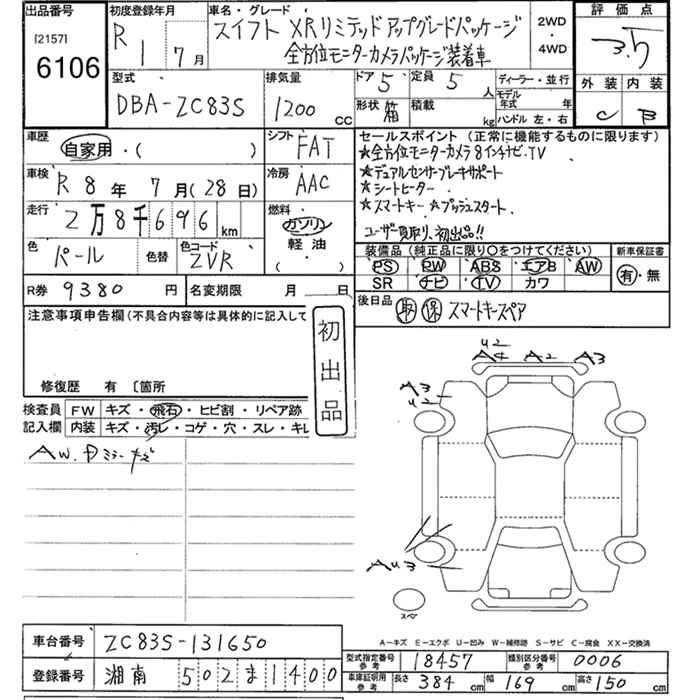 出品番号
[2157]
6106
初度登録年月
R 1年 7月
車名・グレード
スイフト XRリミテッド アップグレードパッケージ
全方位モニターカメラパッケージ装着車
2WD
・
4WD
評価点
3.5
外装 内装
C B
型式
DBA-ZC83S
排気量
1200 cc
ドア 5
定員 5 人
形状 箱
積載 kg
ディーラー・並行
モデル年式 年
ハンドル 左・右
車歴
自家用・( )
シフト
FAT
車検
R 8年 7月(28日)
冷房
AAC
走行
2万8千696km
燃料
ガソリン
軽油
( )
色
パール
色替
色コード
ZVR
R券 9380 円
名変期限 月 日
セールスポイント (正常に機能するものに限ります)
★全方位モニターカメラ8インチナビ.TV
★デュアルセンサーブレーキサポート
★シートヒーター.
★スマートキー ★プッシュスタート.
ユーザー買取り、初出品!!
装備品(純正品に限り○をつけてください)
PS PW ABS エアB AW
SR ナビ TV カワ
新車保証書
有・無
後日品 取 保 スマートキースペア
注意事項申告欄(不具合内容等は具体的に記入して
初出品
修復歴 有 〔箇所
検査員記入欄
FW キズ・飛石・ヒビ割・リペア跡
内装 キズ・汚レ・コゲ・穴・スレ・キレ
AW.Dミラーキズ
U2
A4 A2 A3
A3
U2
AU3
スペア
A-キズ E-エクボ U-凹み W-補修跡 S-サビ C-腐食 XX-交換済
車台番号 ZC83S-131650
登録番号 湘南 502ま1400
型式指定番号 参考 18457
類別区分番号 参考 0006
車庫証明用 参考 長さ 384 cm 幅 169 cm 高さ 150 cm